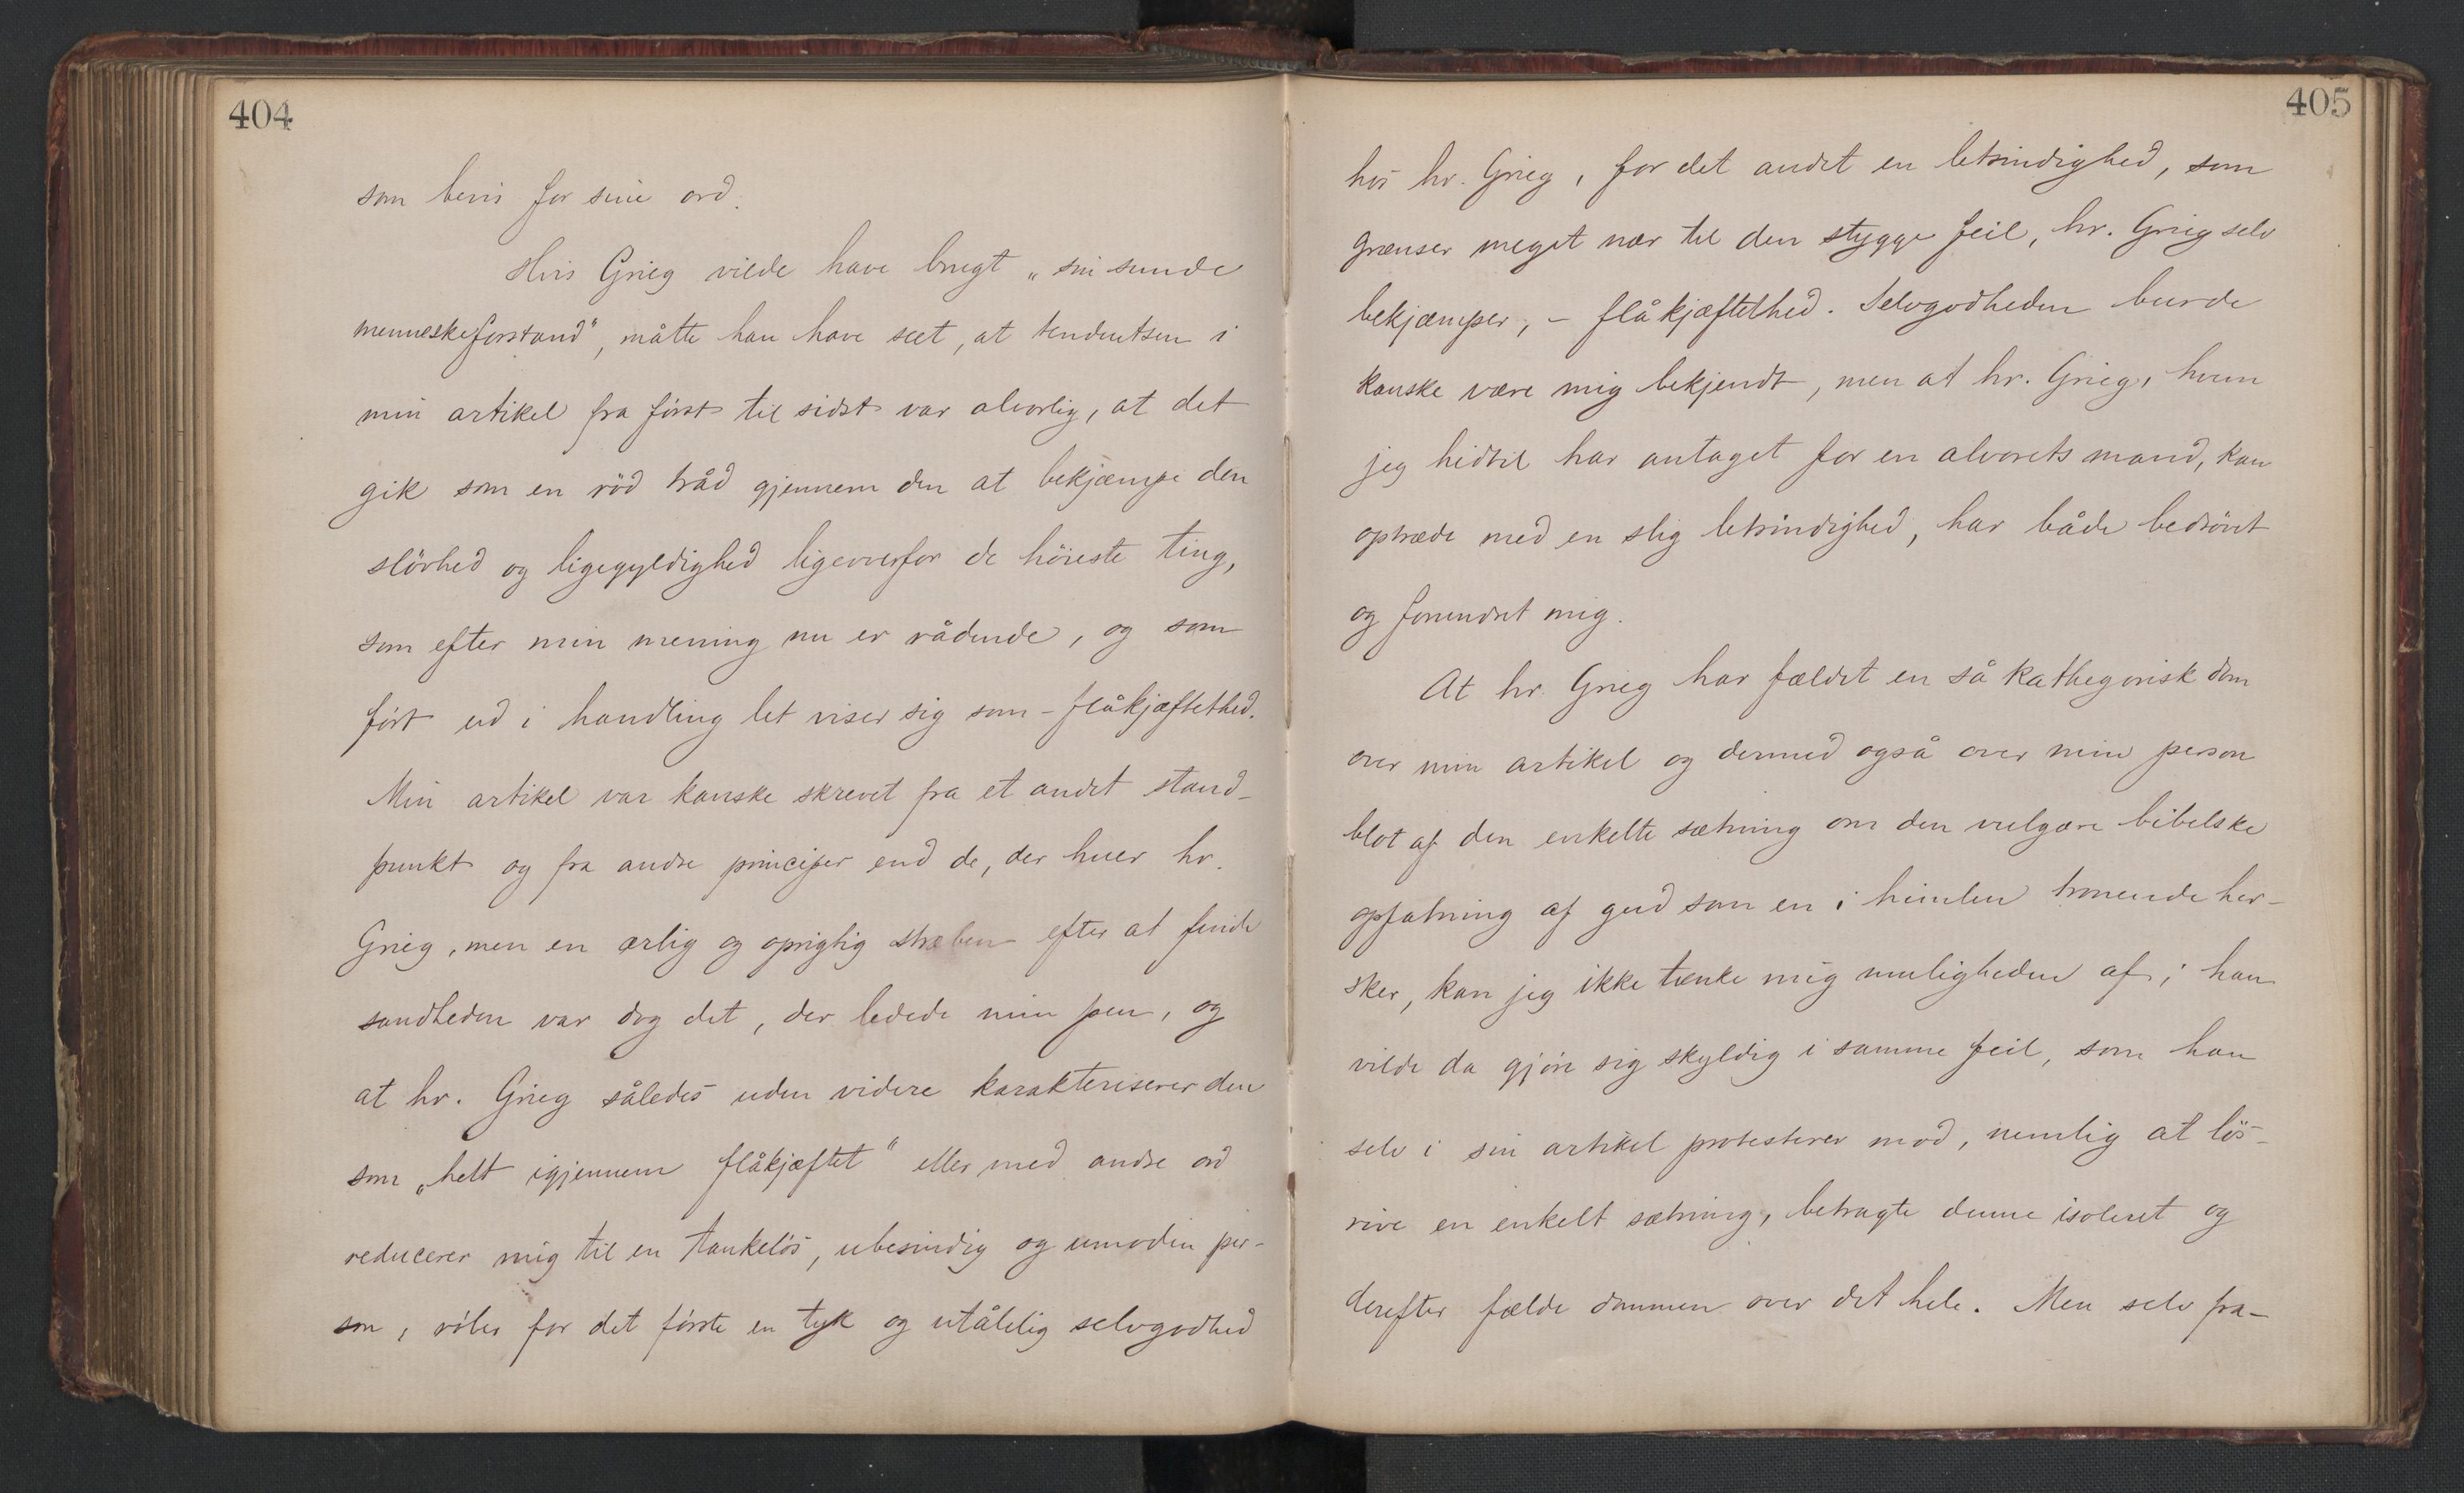 404
som bevis for sine ord.
Hvis Grieg vilde have brugt „sin sunde
menneskeforstand", måtte han have seet, at tendentsen i
min artikel fra först til sidst var alvorlig, at det
gik som en röd tråd gjennem den at bekjæmpe den
slövhed og ligegyldighed ligeoverfor de höieste ting,
som efter min mening nu er rådende, og som
fört ud i handling let viser sig som – flåkjæftethed.
Min artikel var kanske skrevet fra et andet stand-
punkt og fra andre principer end de, der huer hr.
Grieg, men en ærlig og oprigtig stræben efter at finde
sandheden var dog det, der ledede min pen, og
at hr. Grieg således uden videre karakteriserer den
som „helt igjennem flåkjæftet" eller med andre ord
reducerer mig til en tankelös, ubesindig og umoden per-
son, röber for det förste en tyk og utålelig selvgodhed
405
hos hr. Grieg, for det andet en letsindighed, som
grænser meget nær til den stygge feil, hr. Grieg selv
bekjæmper, – flåkjæftethed. Selvgodheden burde
kanske være mig bekjendt, men at hr. Grieg, hvem
jeg hidtil har antaget for en alvorets mand, kan
optræde med en slig letsindighed, har både bedrövet
og forundret mig.
At hr. Grieg har fældet en så kathegorisk dom
over min artikel og dermed også over min person
blot af den enkelte sætning om den vulgære bibelske
opfatning af gud som en i himlen tronende her-
sker, kan jeg ikke tænke mig muligheden af; han
vilde da gjöre sig skyldig i samme feil, som han
selv i sin artikel protesterer mod, nemlig at lös-
rive en enkelt sætning, betragte denne isoleret og
derefter fælde dommen over det hele. Men selv fra-